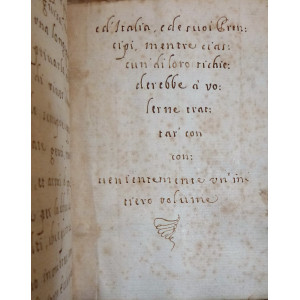 ed'Italia, e de suoi Prin:
cipi, mentre cias:
cun' di loro richie:
derebbe à vo:
lerne trat:
tar' con
con:
uenientemente un'in
tiero volume